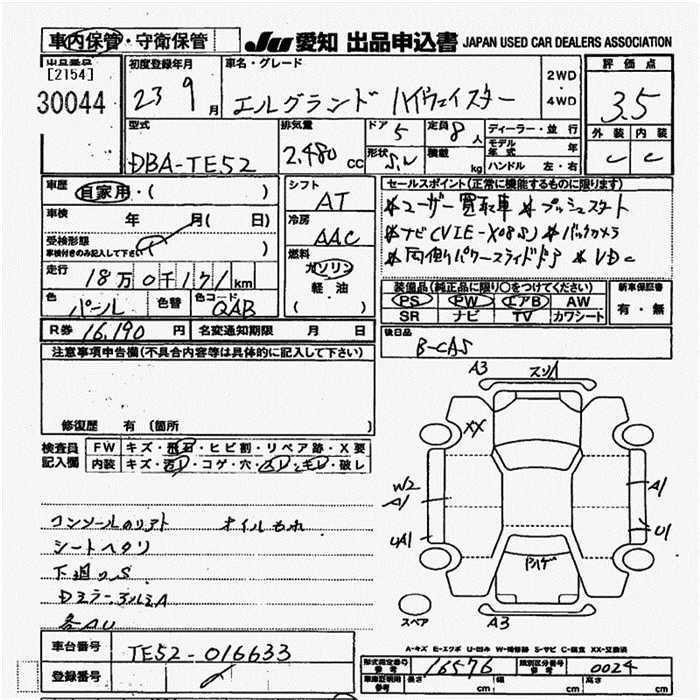 車内保管・守衛保管 JU 愛知 出品申込書 JAPAN USED CAR DEALERS ASSOCIATION
出品番号 初度登録年月 車名・グレード 2WD ・ 4WD 評価点
[2154]
30044 23 9月 エルグランド ハイウェイスター 3.5
外装 内装
C C
型式 排気量 ドア 定員 ディーラー・並行
DBA-TE52 2,480 CC 5 8人 モデル年式 年
形状 S.W 積載 kg ハンドル 左・右
車歴 自家用・( )
シフト AT
セールスポイント(正常に機能するものに限ります)
車検 年 月( 日)
冷房 AAC
*ユーザー買取車 *プッシュスタート
受検形態
車検付きのみ記入して下さい
*ナビ(VIE-X08S) *バックカメラ
燃料 ガソリン
軽・油
( )
*両側パワースライドドア *VDC
走行 18万0千171km
色 パール 色替 色コード QAB
装備品(純正品に限り○をつけてください) 新車保証書
PS PW エアB AW 有・無
SR ナビ TV カワシート
R券 16,190円 名変通知期限 月 日
後日品
B-CAS
注意事項申告欄(不具合内容等は具体的に記入して下さい)
修復歴 有 (箇所 )
検査員記入欄 FW キズ・飛石・ヒビ割・リペア跡・X要
内装 キズ・汚レ・コゲ・穴・スレ・キレ・破レ
A3 スリA
XX
W2
A1 A1
UA1 U1
ハゲ
スペア A3
コンソールのリアト オイルもれ
シートヘタリ
下廻りS
Dミラー
各AU
A-キズ E-エクボ U-凹み W-補修跡 S-サビ C-腐食 XX-交換済
車台番号 TE52-016633
登録番号
形式指定番号 参考 16576 類別区分番号 参考 0024
車庫証明用 参考 長さ cm 幅 cm 高さ cm